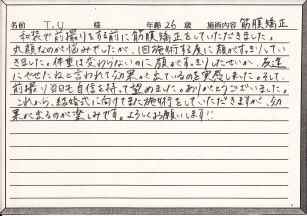 名前 T.U 様 年齢 26 歳 施術内容 筋膜矯正
和装で前撮りをする前に筋膜矯正をしていただきました。
丸顔なのが悩みでしたが、1回施術する度に顔がすっきりしていき
ました。体重は変わらないのに顔がすっきりしたせいか、友達
にやせたねと言われて効果が出ているのを実感しました。そして、
前撮り当日も自信を持って望めました。ありがとうございました。
これから、結婚式に向けてまた施術をしていただきますが、効
果が出るのが楽しみです。よろしくお願いします!!